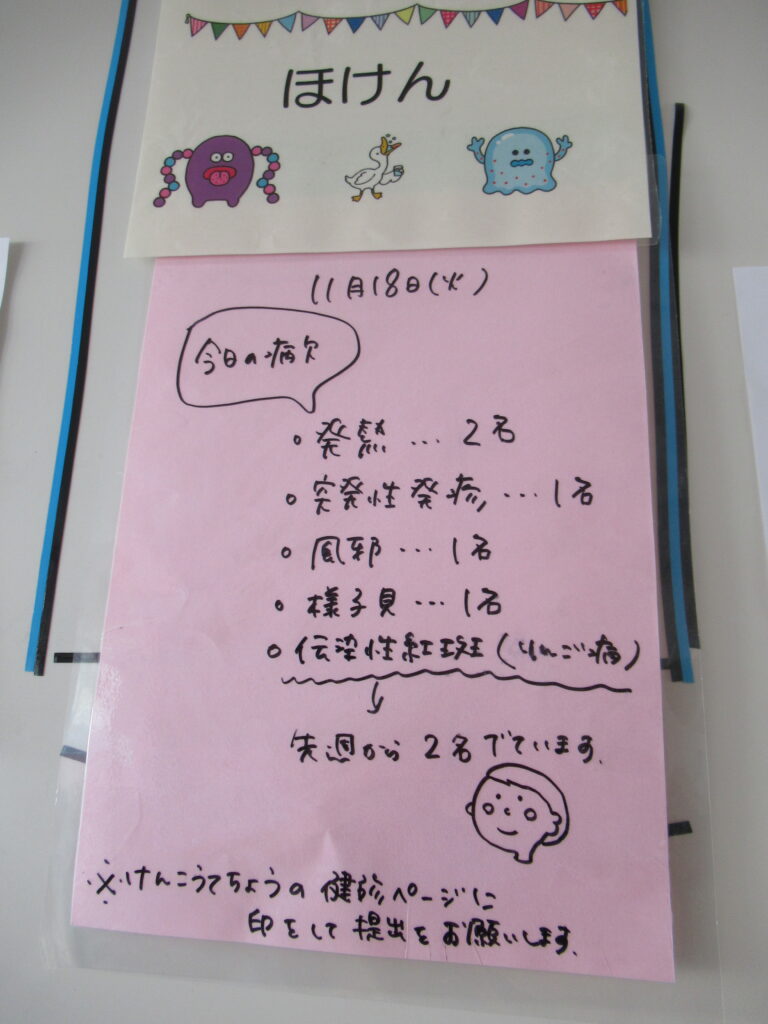 ほけん
11月18日(火)
今日の病欠
。発熱 … 2名
。突発性発疹 … 1名
。風邪 … 1名
。様子見 … 1名
。伝染性紅斑(りんご病)
先週から 2名でています。
※けんこうてちょうの健診ページに
印をして提出をお願いします。